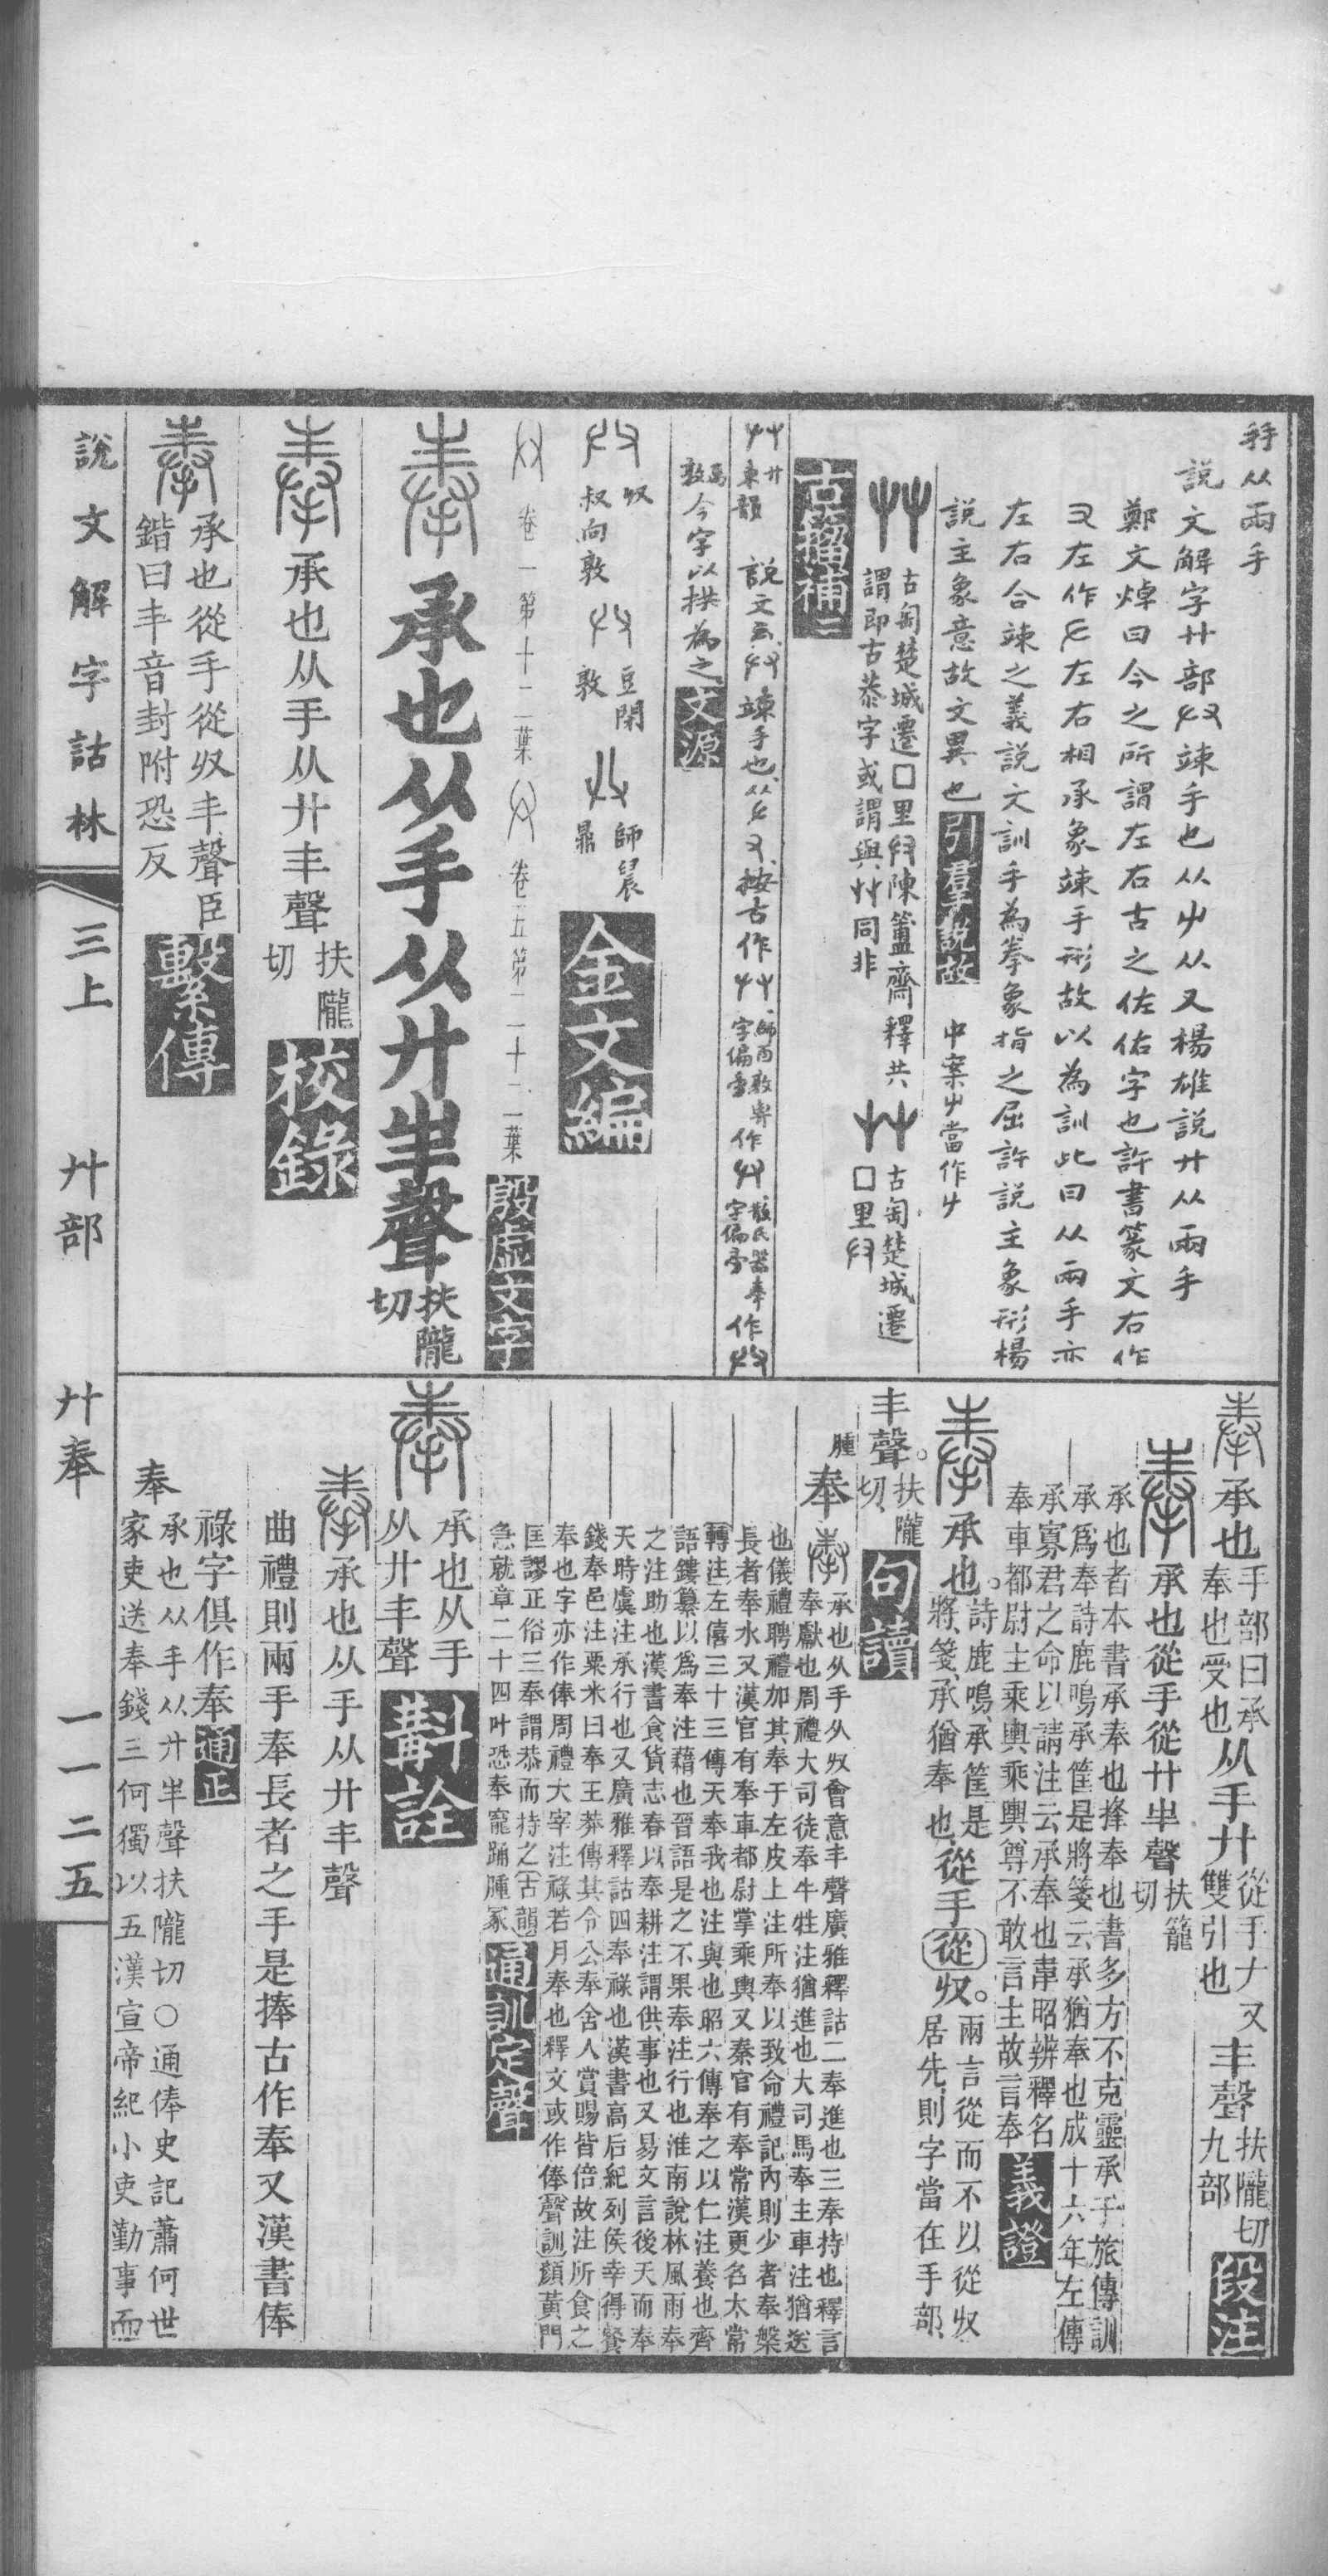 䍿从兩手
說文解字廾部𠬞竦手也从𠂇从又楊雄說廾从兩手
鄭文焯曰今之所謂左右古之佐佑字也許書篆文右作
又左作𠂇左右相承象竦手形故以為訓此曰从兩手亦
左右合竦之義說文訓手為拳象指之屈許說主象形楊
說主象意故文異也
引羣說故
中案𠂇當作
古匋楚城遷□里𠬞陳簠齋釋共
謂即古恭字或謂與艸同非
古匋楚城遷
□里𠬞
古籀補
廾東韻
說文云𠬞竦手也从𠂇又按古作
師酉敦
字偏旁
作
散氏器奉
字偏旁
作
今字以拱為之
文源
𠬞
叔向敦
豆閉
敦
師晨
鼎
金文編
卷一第十二葉
卷五第二十二葉
殷虛文字
承也从手从廾丰聲
扶隴
切
承也从手从廾丰聲
扶隴
切
校錄
承也從手從𠬞丰聲臣
鍇曰丰音封附恐反
繫傳
承也
手部曰承
奉也受也
从手廾
從手𠂇又
雙引也
丰聲
扶隴切
九部
段注
承也從手從廾丰聲
扶籠
切
承也者本書承奉也捀奉也書多方不克靈承于旅傳訓
承爲奉詩鹿鳴承筐是將箋云承猶奉也成十六年左傳
承寡君之命以請注云承奉也韋昭辨釋名
奉車都尉主乘輿乘輿尊不敢言主故言奉
義證
承也。
詩鹿鳴、承筐是
將、箋、承猶奉也、
從手從𠬞。
兩言從而不以從𠬞
居先、則字當在手部、
丰聲。
扶隴
切、
句讀
腫
奉
承也从手从𠬞會意丰聲廣雅釋詁二奉進也三奉持也釋言
奉獻也周禮大司徒奉牛牲注猶進也大司馬奉主車注猶送
也儀禮聘禮加其奉于左皮上注所奉以致命禮記內則少者奉槃
長者奉水又漢官有奉車都尉掌乘輿又秦官有奉常漢更名太常
轉注左僖三十三傳天奉我也注與也昭六傳奉之以仁注養也齊
語鏤纂以爲奉注藉也晉語是之不果奉注行也淮南說林風雨奉
之注助也漢書食貨志春以奉耕注謂供事也又易文言後天而奉
天時虞注承行也又廣雅釋詁四奉祿也漢書高后紀列侯幸得餐
錢奉邑注粟米曰奉王莽傳其令公奉舍人賞賜皆倍故注所食之
奉也字亦作俸周禮大宰注祿若月奉也釋文或作俸聲訓顏黃門
匡謬正俗三奉謂恭而持之古韻
急就章二十四叶恐奉寵踊腫冢
通訓定聲
承也从手
从廾丰聲
斠詮
承也从手从廾丰聲
曲禮則兩手奉長者之手是捧古作奉又漢書俸
祿字俱作奉
通正
奉
承也从手从廾半聲扶隴切〇通俸史記蕭何世
家吏送奉錢三何獨以五漢宣帝紀小吏勤事而
說文解字詁林
三上
廾部
廾奉
一一二五